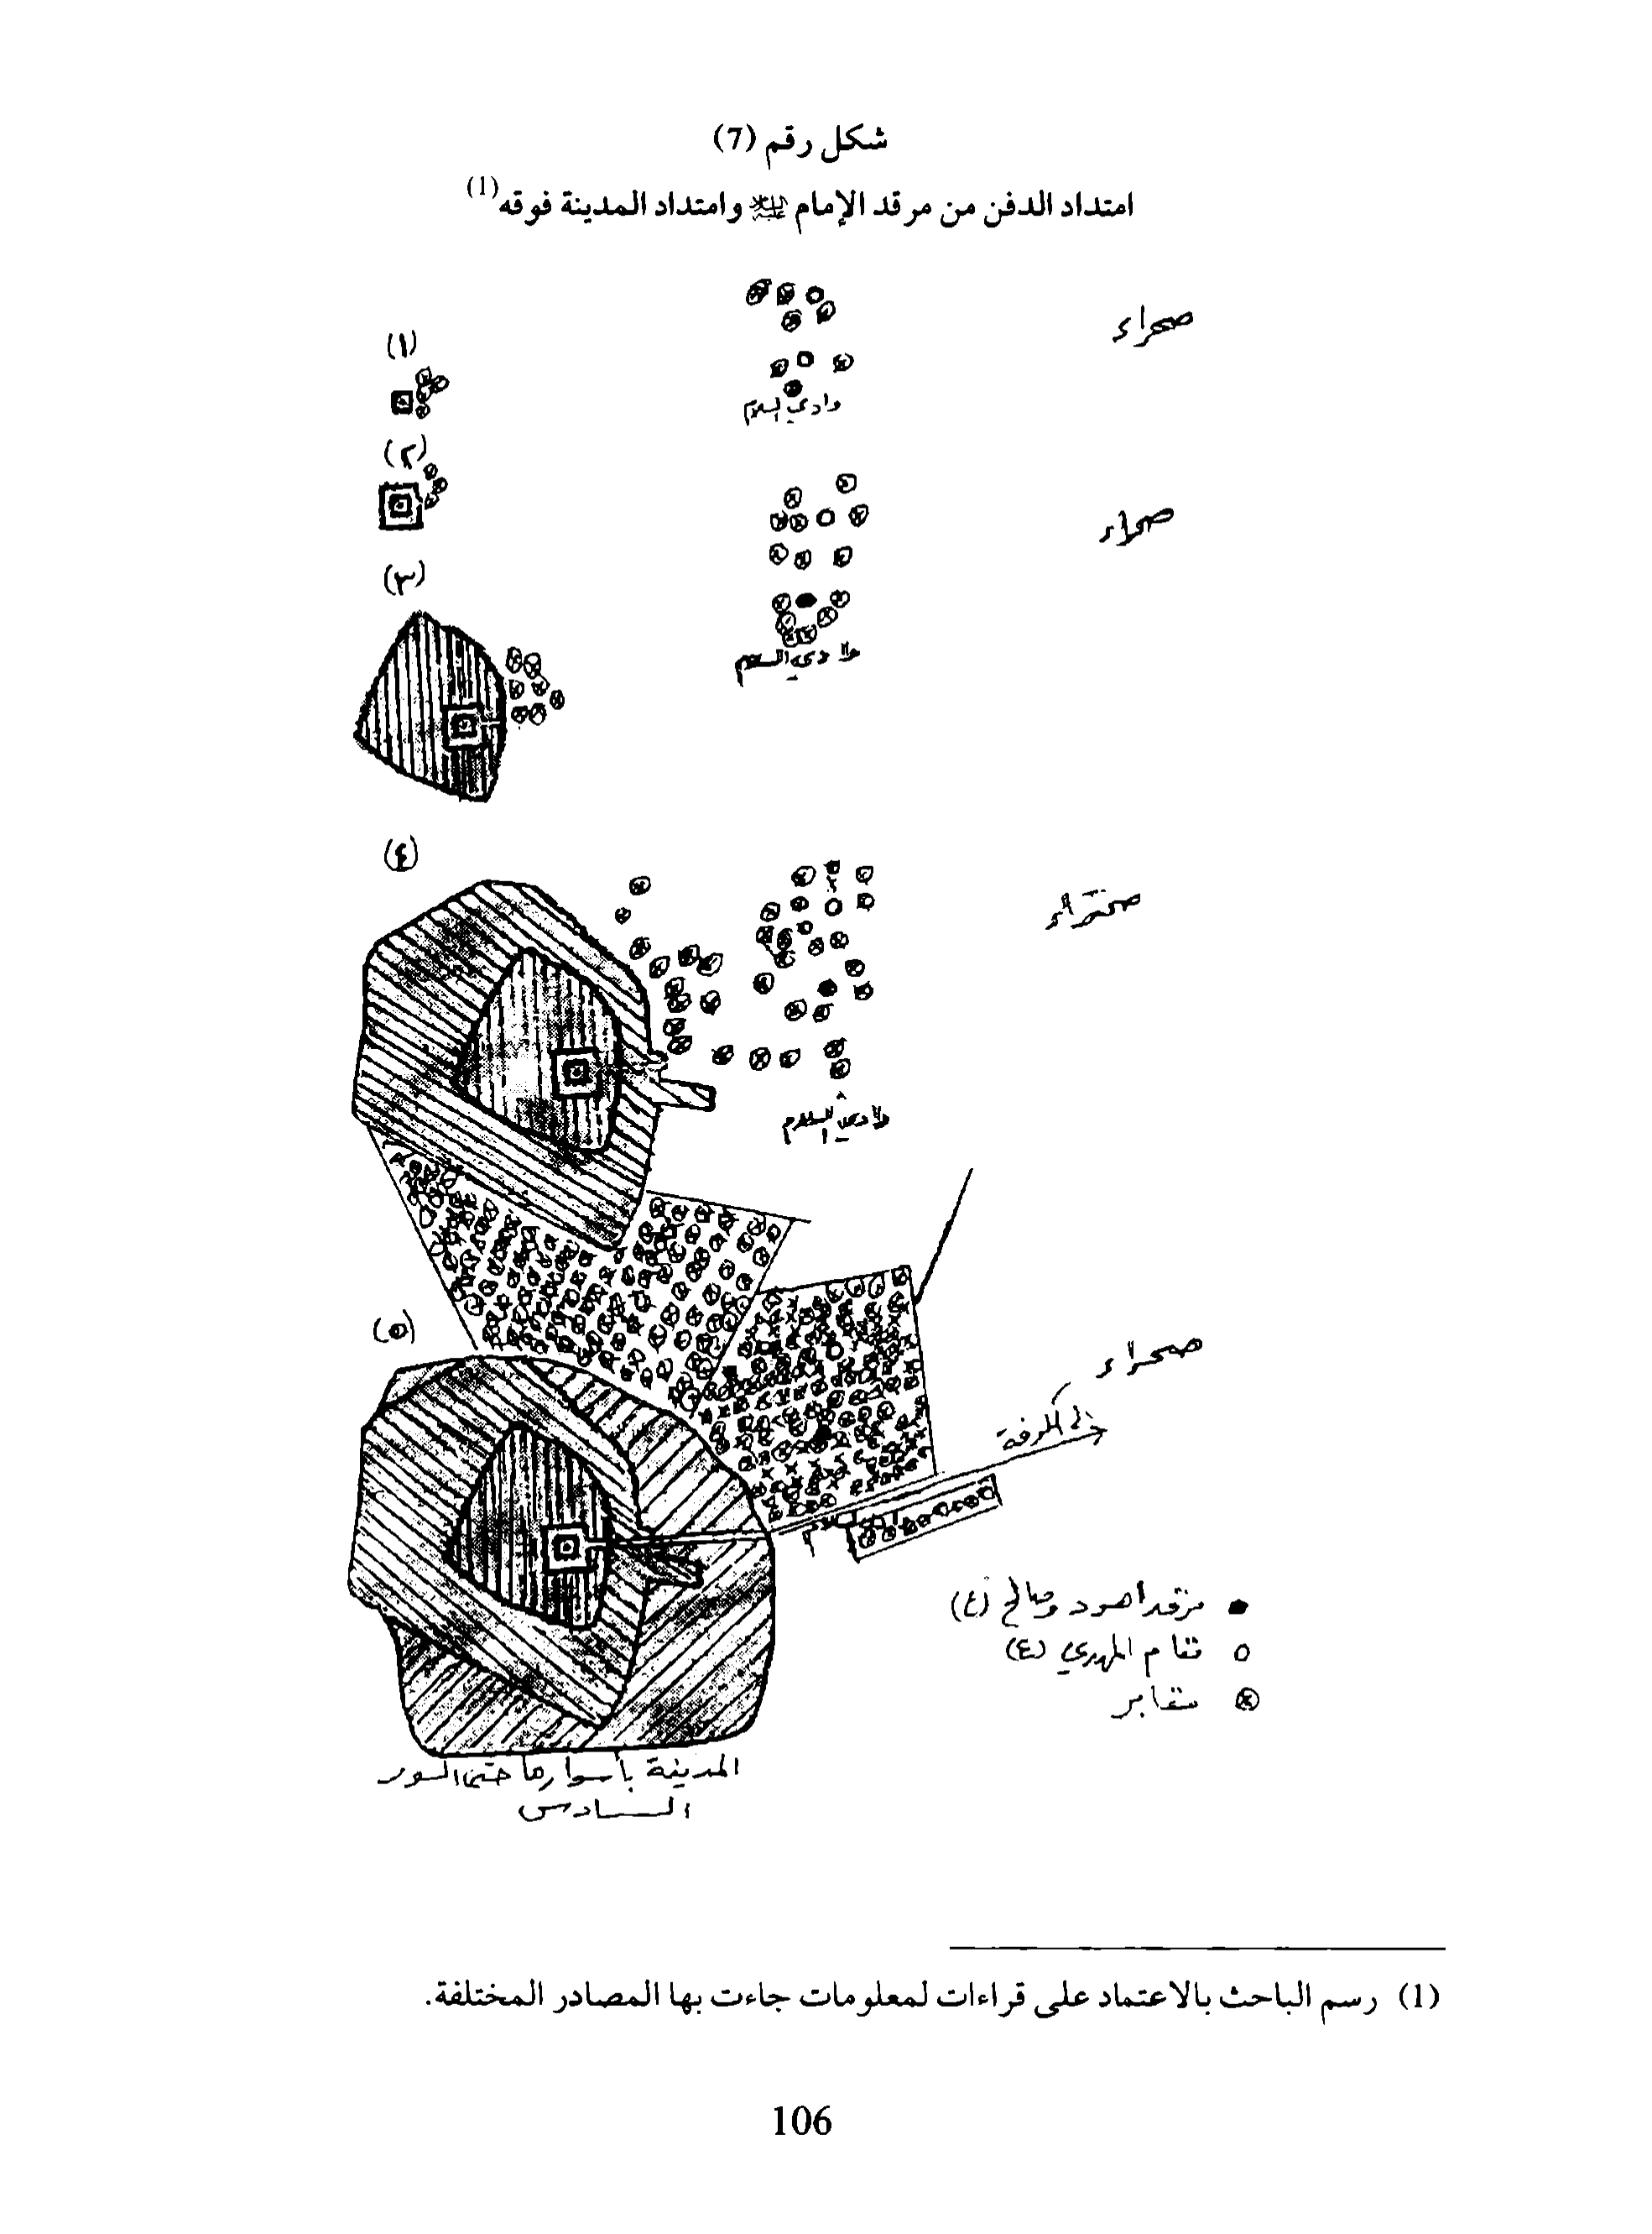 شكل رقم (7)
امتداد الدفن من مرقد الإمام عليه السلام وامتداد المدينة فوقه(1)
صحراء
(١)
وادي السلام
(٢)
صحراء
(٣)
وادي السلام
(٤)
صحراء
وادي السلام
(٥)
صحراء
الى الكوفة
مرقد اهود وصالح (ع)
مقام المهدي (ع)
مقابر
المدينة بأسوارها حتى السور
السادس
(1) رسم الباحث بالاعتماد على قراءات لمعلومات جاءت بها المصادر المختلفة.
106